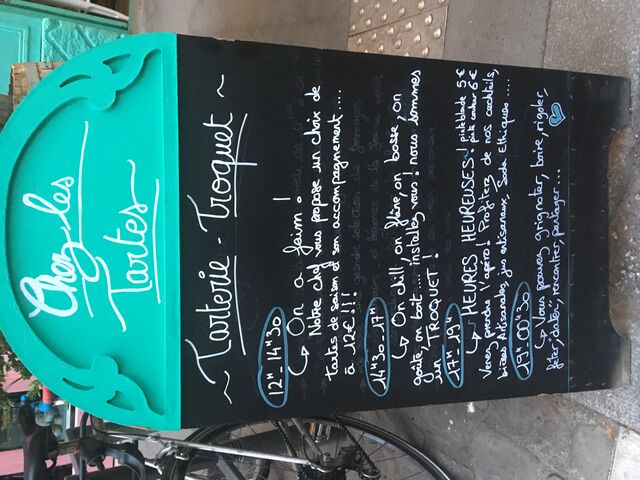 Chez les
Tartes
~ Tarterie - Troquet ~
12H - 14H30
↳ On a faim !
Notre chef vous propose un choix de
Tartes de saison et son accompagnement ....
à 12€ !!!
14H30 - 17H
↳ On chill, on flâne, on bosse, on
goûte, on boit .... installez vous ! nous sommes
un TROQUET !
17H - 19H
↳ HEURES HEUREUSES - pinte blonde 5€
Venez prendre l'apéro ! Profitez de nos cocktails,
bières Artisanales, jus artisanaux Soda Ethiques ....
19H - 00H30
↳ Vous pouvez grignoter, boire, rigoler,
rencontrer, partager ....